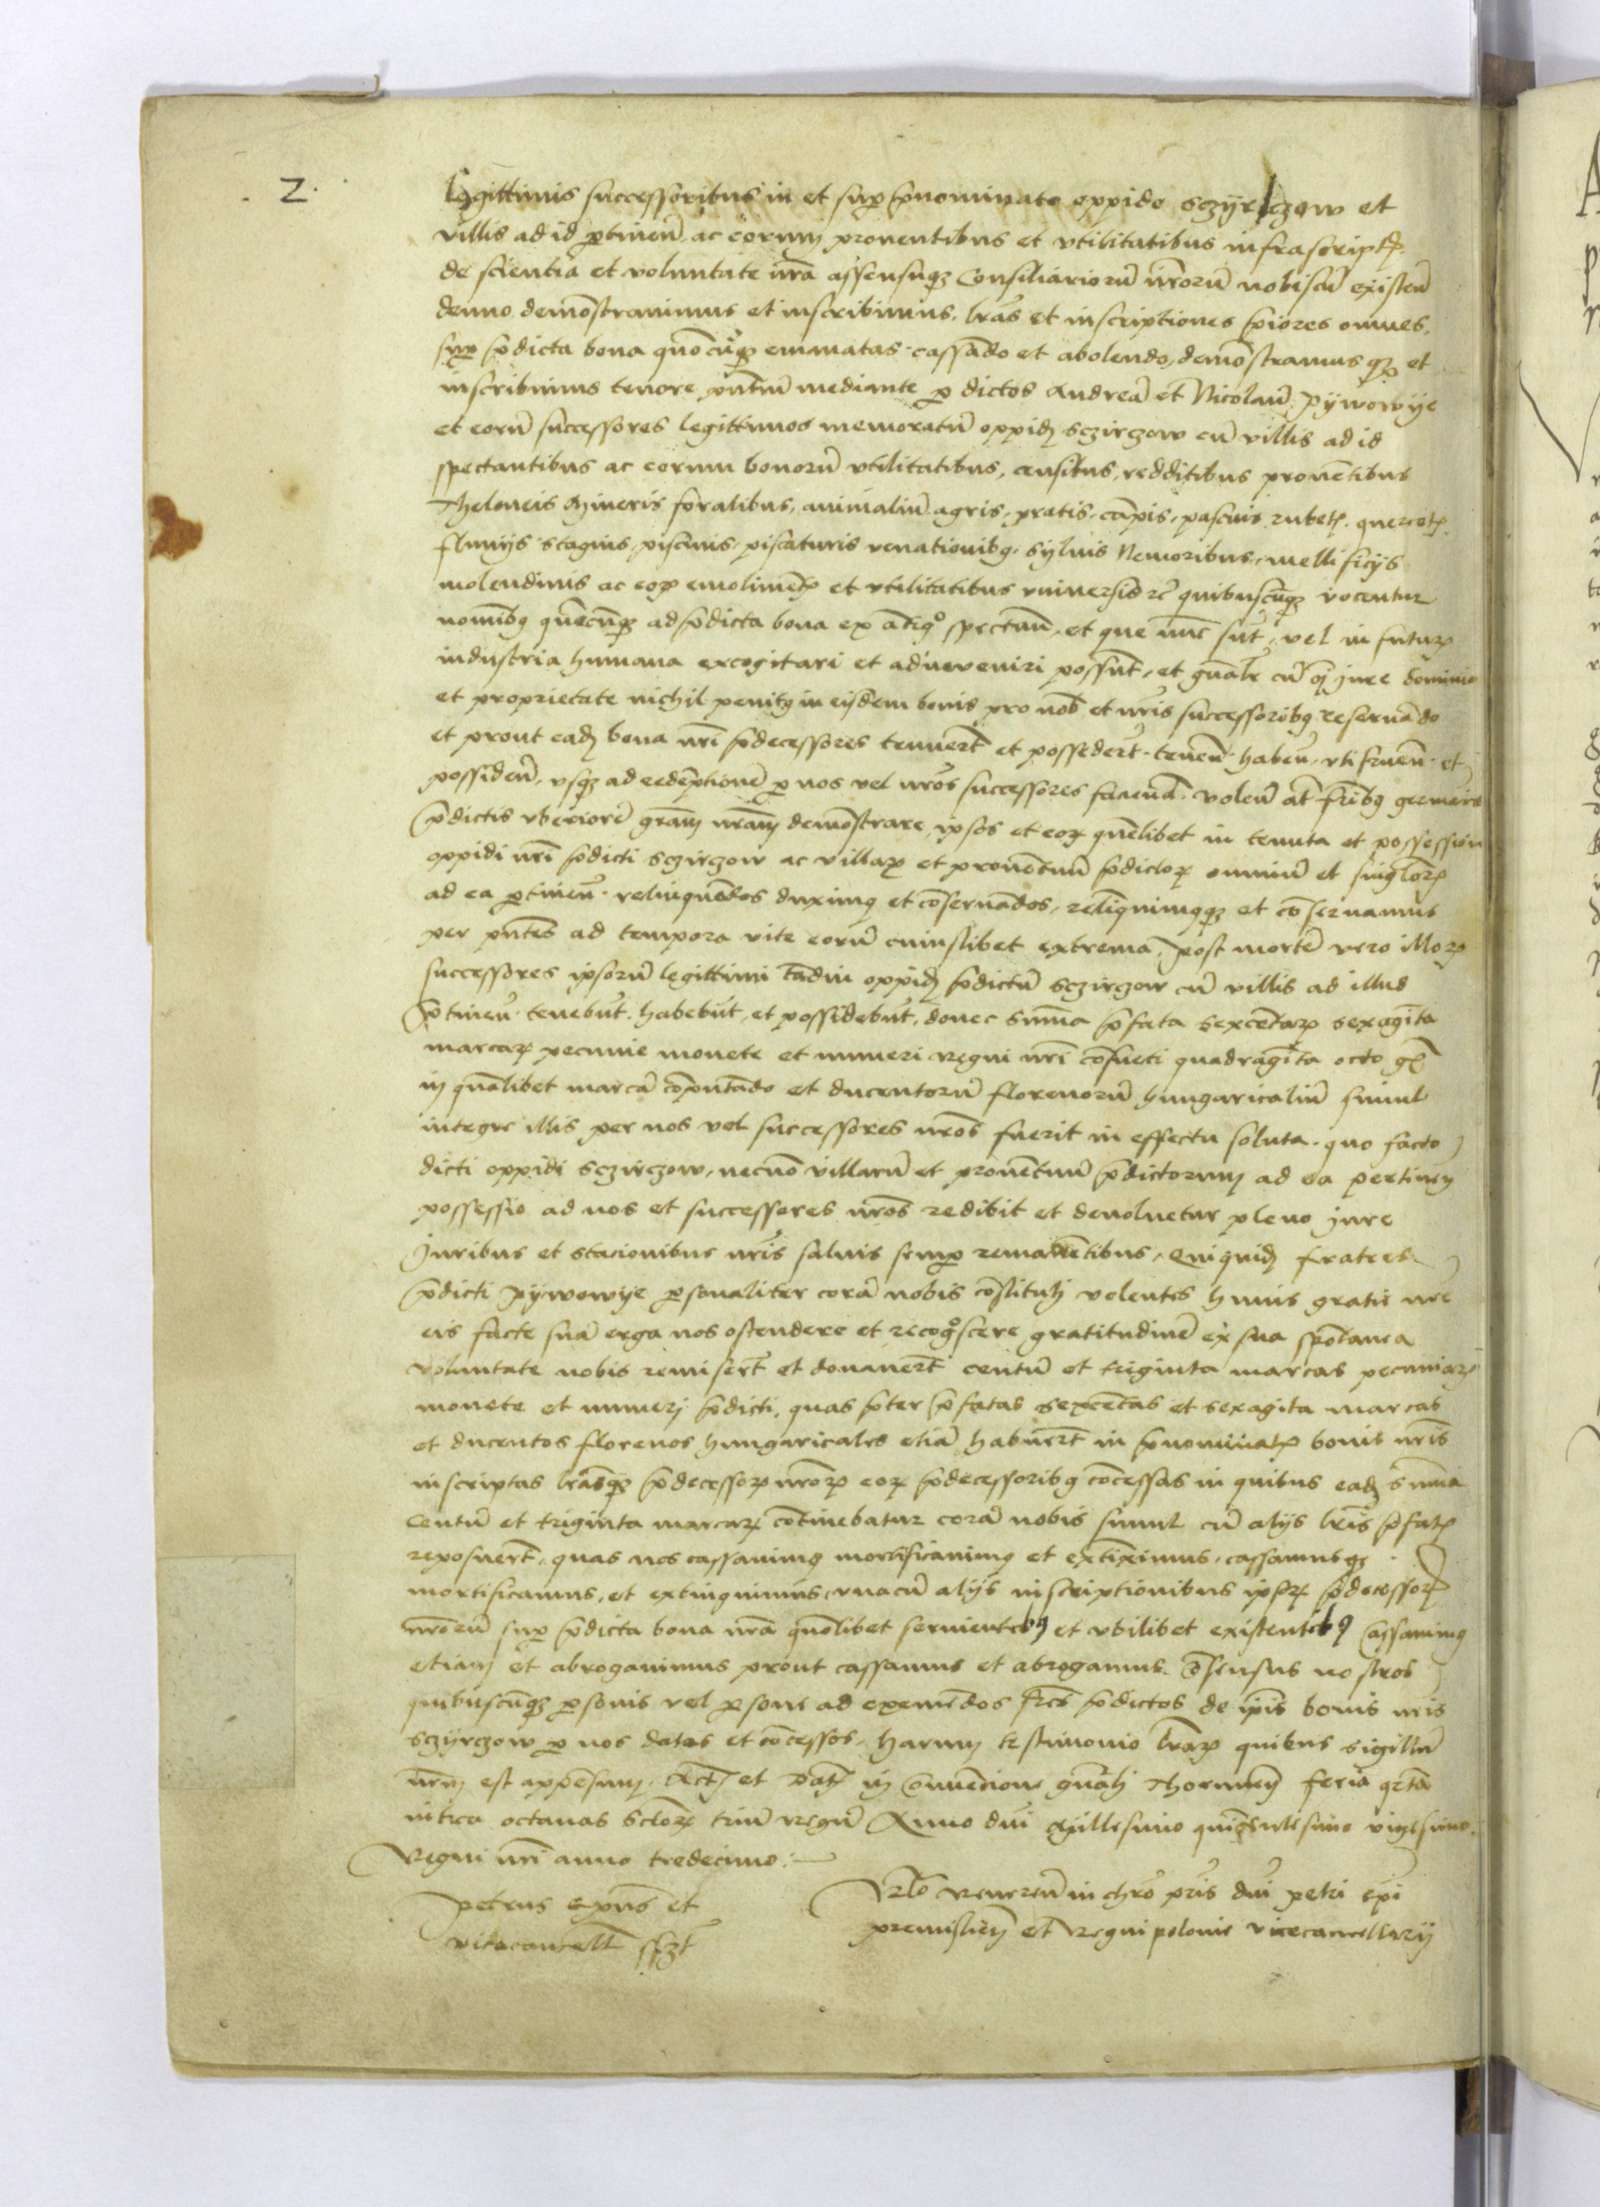 2.
legittimis successoribus in et sup p̄nominato oppido Sczÿrczow et
villis ad id ptinen̄ ac eorum prouentibus et vtilitatibus infrascript
de scientia et voluntate nr̄a assensuq Consiliariorū nr̄orū nobiscū existen̄
denuo demōstrauimus et inscribimus. lr̄as et inscriptiones p̄iores omnes,
sup p̄dicta bona quōcūq emanatas cassādo et abolendo, demōstramusq et
inscribimus tenore pn̄tiū mediante p dictos Andreā et Nicolaū Pÿwowÿe
et eorū successores legittimos memoratū oppid Sczirczow cū villis ad id
spectantibus ac eorum bonorū vtilitatibus, censibus, redditibus prouētibus
Theloneis Mineris foralibus, animaliū agris, pratis, cāpis, pascuis, rubet, quercet
fluuÿs stagnis, piscinis, piscaturis venationibq, sÿluis Nemoribus, mellificÿs
molendinis ac eor emolimēt et vtilitatibus vniuersis quibuscūq vocentur
nomībq quecūq ad p̄dicta bona ex ātiqo spectan̄, et que nūc sūt, vel in futur
industria humana excogitari et adinueniri possūt, et gn̄alr cū oi jure dominio
et proprietate nichil penitq in eisdem bonis pro nob et nr̄is successoribq reseruādo
et prout ead bona nr̄i p̄decessores tenuert et possedert, tenen̄ haben̄, vtifruen̄ et
possiden̄, vsq ad redēptionē p nos vel nr̄os successores faciend. Volen̄ at fr̄ibq germanis
p̄dictis vberiorē grām nr̄am demōstrare, ipsos et eor quēlibet in tenuta et possession
oppidi nr̄i p̄dicti Sczirczow ac villar et prouentuū p̄dictor omniū et singlor
ad ea ptinen̄ relinquēdos duximq et cōseruādos, relinquimqq et cōseruamus
per pn̄tes ad tempora vite eorū cuiuslibet extrema. Post mortē vero illor
successores ipsorū legittimi tādiu oppid p̄dictū Sczirczow cū villis ad illud
ptinen̄ tenebūt, habebūt, et possidebūt, donec sūma p̄fata sexcētar sexagīta
marcar pecunie monete et numeri regni nr̄i cōsueti quadragīta octo gr
in quālibet marcā cōputādo et ducentorū florenorū hungaricaliū simul
integre illis per nos vel successores nr̄os fuerit in effectu soluta. quo facto
dicti oppidi Sczirczow, necnō villarū et prouētuū p̄dictorum ad ea pertinen
possessio ad nos et successores nr̄os redibit et deuoluetur pleno jure
Juribus et stacionibus nr̄is saluis semp remanētibus. Quiquid fratres
p̄dicti Pÿwowÿe psonaliter corā nobis cōstituti volentes huius gratie nr̄e
eis facte suā erga nos ostendere et recogoscere gratitudinē ex sua spōtanea
voluntate nobis remisert et donauert centū et triginta marcas pecuniar
monete et numeri p̄dicti, quas p̄ter p̄fatas sexcētas et sexagita marcas
et ducentos florenos hungaricales etiā habuert in p̄nominat bonis nr̄is
inscriptas lr̄asq p̄decessor nr̄or eor p̄decessoribq cōcessas in quibus ead sūma
Centū et triginta marcar cōtinebatur corā nobis simul cū alÿs lr̄is p̄fat
reposuert, quas nos cassauimq mortificauimq et extīximus, cassamusq
mortificamus, et extinguimus, vnacū alÿs inscriptionibus ipsor p̄decessor
nr̄orū sup p̄dicta bona nr̄a quōlibet seruientibq et vbilibet existentibq Cassauimq
etiam et abrogauimus prout cassamus et abrogamus. cōsensus nostros
quibuscūq psonis vel psone ad eximēdos fr̄es p̄dictos de ipis bonis nr̄is
Sczÿrczow p nos datos et cōcessos. Harum testimonio lr̄ar quibus sigillū
nr̄m est appēsum. Act et Dat in cōuentione gn̄ali Thorunen feria qrta
infra octauas sctor triū regū Anno dn̄i Millesimo quīgentesimo vigesimo.
Regni nr̄i anno tredecimo:
Petrus epūs et
vicecancell sszt
Rlo Reueren̄ in chro pr̄is dn̄i petri epi
premislien et Regni polonie vicecancellarÿ